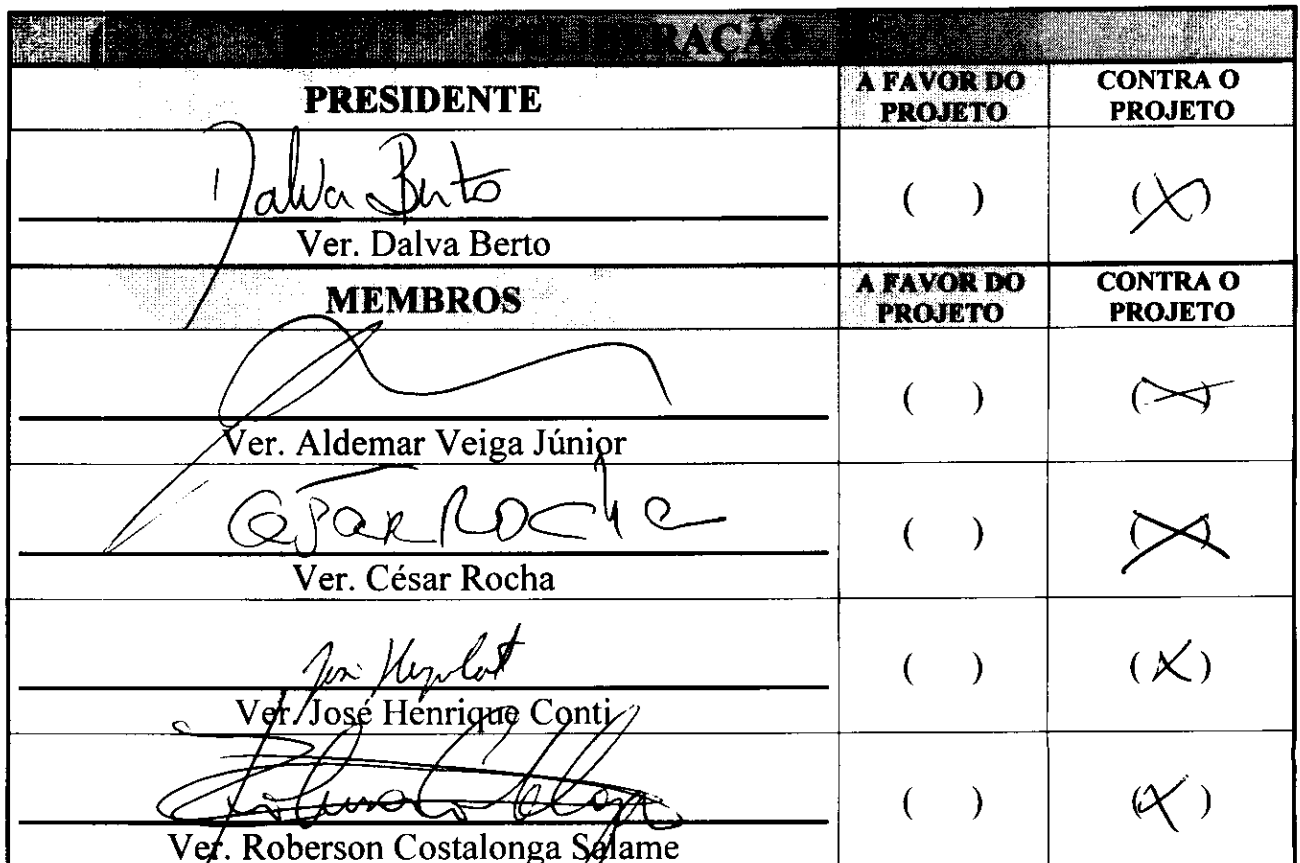 DELIBERAÇÃO
PRESIDENTE A FAVOR DO PROJETO CONTRA O PROJETO
Dalva Berto
( ) (X)
Ver. Dalva Berto
MEMBROS A FAVOR DO PROJETO CONTRA O PROJETO
( ) (X)
Ver. Aldemar Veiga Júnior
César Rocha
( ) (X)
Ver. César Rocha
( ) (X)
Ver. José Henrique Conti
( ) (X)
Ver. Roberson Costalonga Salame